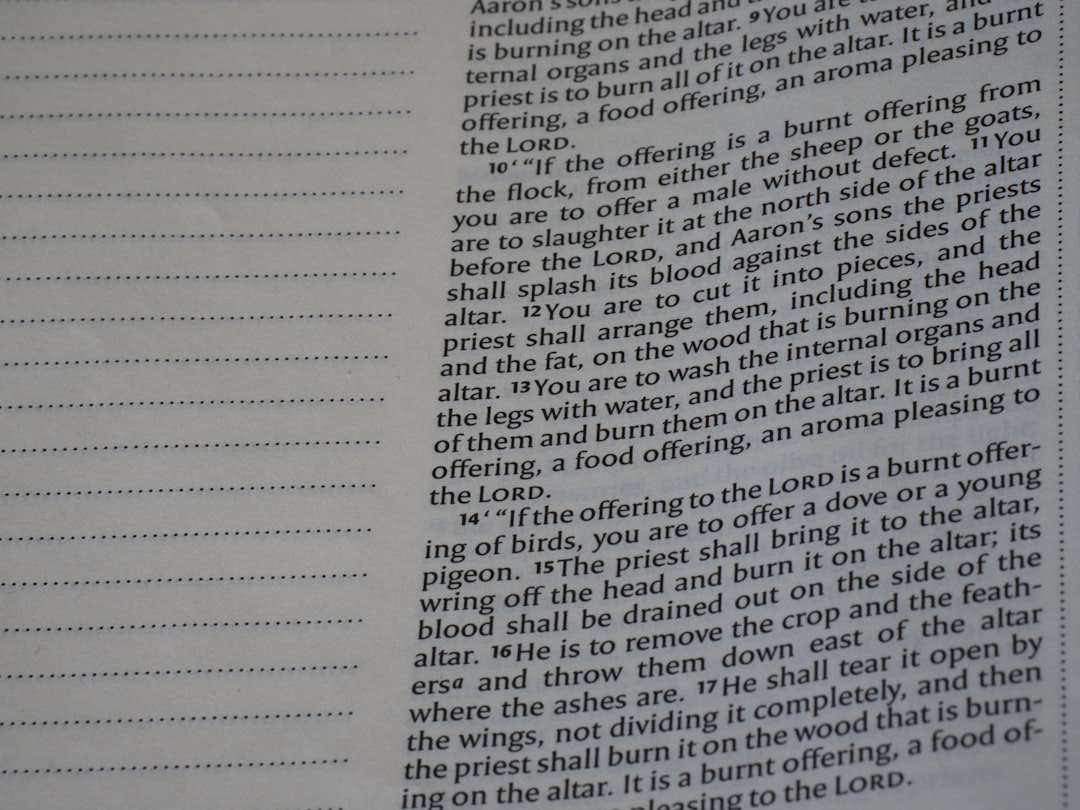 Aaron's sons
including the head and
is burning on the altar. 9You are to
ternal organs and the legs with water, and
priest is to burn all of it on the altar. It is a burnt
offering, a food offering, an aroma pleasing to
the LORD.
10‘“If the offering is a burnt offering from
the flock, from either the sheep or the goats,
you are to offer a male without defect. 11You
are to slaughter it at the north side of the altar
before the LORD, and Aaron's sons the priests
shall splash its blood against the sides of the
altar. 12You are to cut it into pieces, and the
priest shall arrange them, including the head
and the fat, on the wood that is burning on the
altar. 13You are to wash the internal organs and
the legs with water, and the priest is to bring all
of them and burn them on the altar. It is a burnt
offering, a food offering, an aroma pleasing to
the LORD.
14‘“If the offering to the LORD is a burnt offer-
ing of birds, you are to offer a dove or a young
pigeon. 15The priest shall bring it to the altar,
wring off the head and burn it on the altar; its
blood shall be drained out on the side of the
altar. 16He is to remove the crop and the feath-
ersa and throw them down east of the altar
where the ashes are. 17He shall tear it open by
the wings, not dividing it completely, and then
the priest shall burn it on the wood that is burn-
ing on the altar. It is a burnt offering, a food of-
pleasing to the LORD.